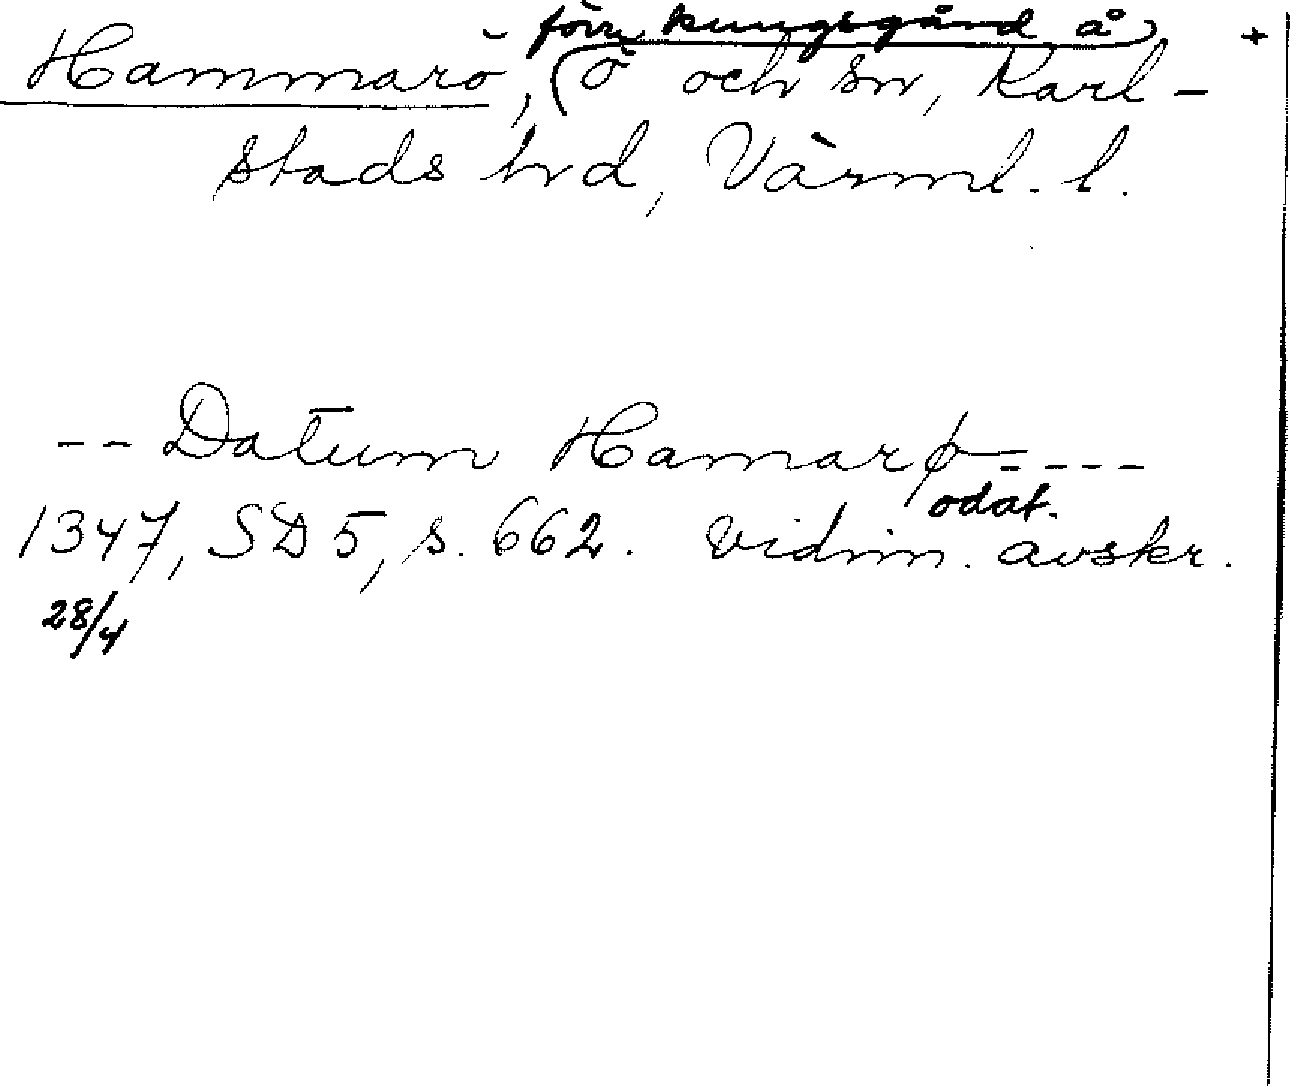 förr kungsgård å +
Hammarö, (ö och sn, Karl-
stads hrd, Värml. l.
-- Datum Hamarø ----
odat.
1347, SD 5, s. 662. Vidim. avskr.
28/4